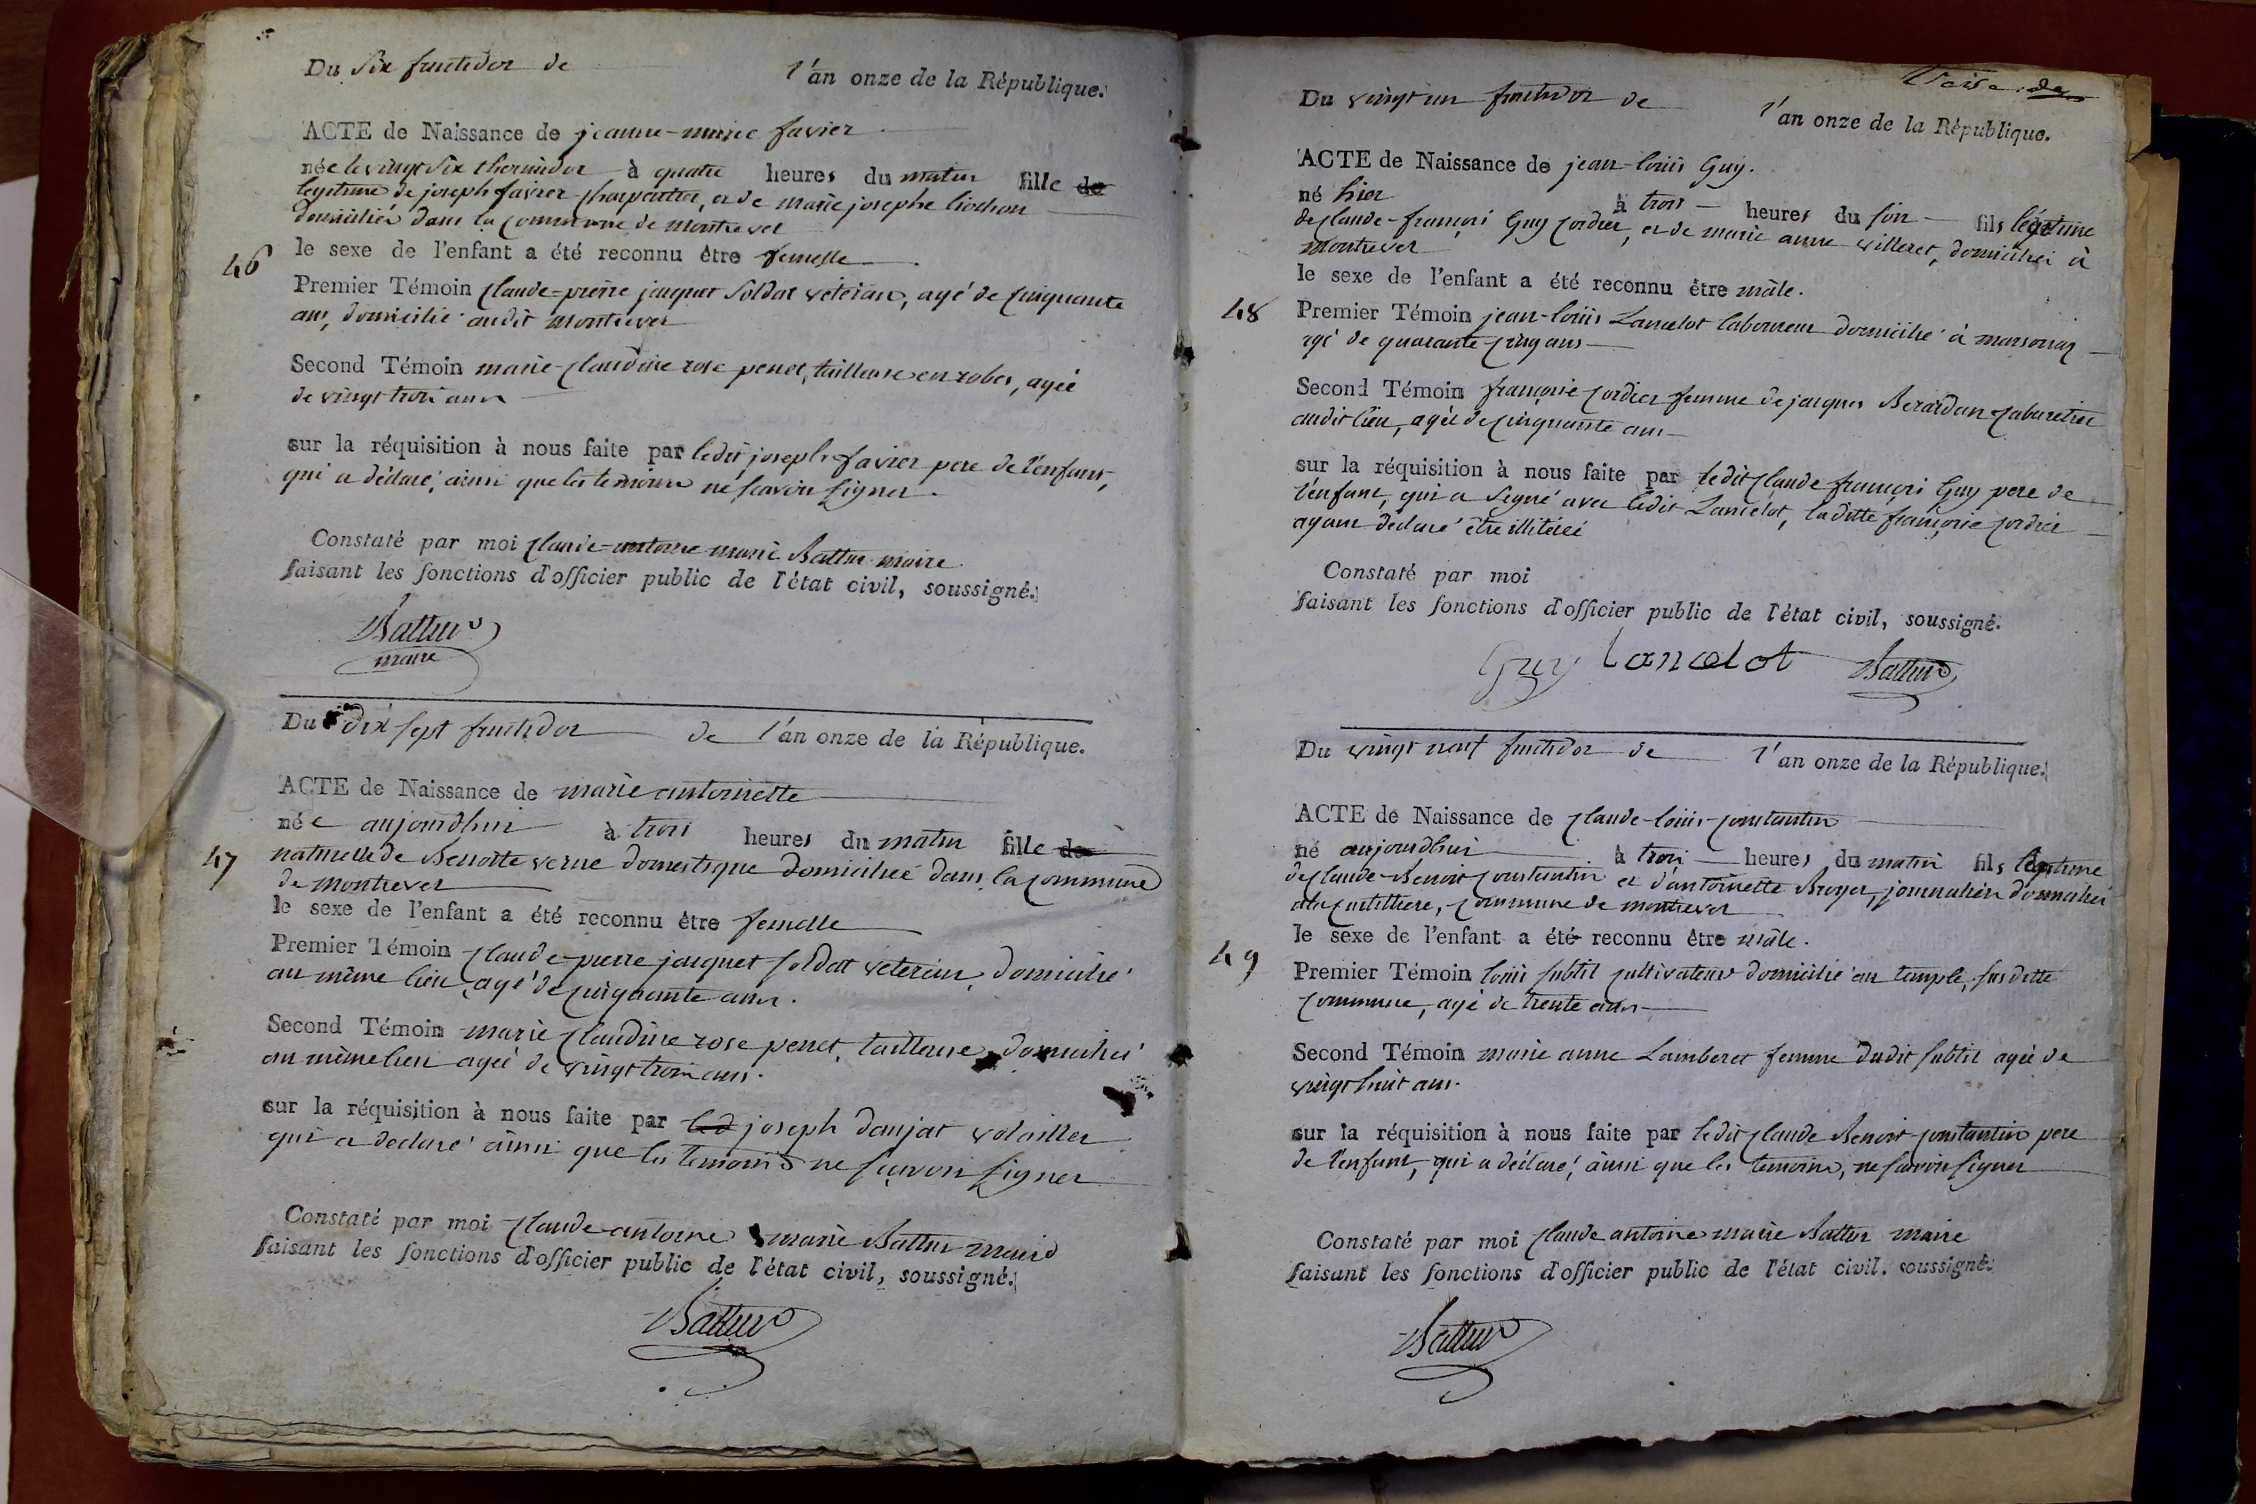 Du Six fructidor de l'an onze de la République.
ACTE de Naissance de jeanne-marie favier
née le vingt six thermidor à quatre heures du matin fille de
legitime de joseph favier charpentier, et de marie josephe
domiciliés dans la commune de montrevel
46
le sexe de l'enfant a été reconnu être femelle
Premier Témoin claude-pierre jacquet soldat véteran, agé de cinquante
ans, domicilié audit montrevel
Second Témoin marie-claudine rose penet, tailleuse en robes, agée
de vingt trois ans
sur la réquisition à nous faite par ledit joseph favier pere de l'enfant,
qui a déclaré, ainsi que les temoins ne scavoir signer.
Constaté par moi claude-antoine marie Battur maire
faisant les fonctions d'officier public de l'état civil, soussigné.
Battur
maire
Du dix sept fructidor de l'an onze de la République.
ACTE de Naissance de marie antoinette
née aujourdhui à trois heures du matin fille de
47
naturelle de Benoite verne domestique domiciliée dans la commune
de montrevel
le sexe de l'enfant a été reconnu être femelle
Premier Témoin claude-pierre jacquet soldat veteran, domicilié
au même lieu agé de cinquante ans.
Second Témoin marie claudine rose penet, tailleuse, domiciliée
au même lieu agée de vingt trois ans.
sur la réquisition à nous faite par led joseph danjat volailler
qui a declaré ainsi que les temoins ne scavoir signer
Constaté par moi claude-antoine marie Battur maire
faisant les fonctions d'officier public de l'état civil, soussigné.
Battur
Du vingt un fructidor de l'an onze de la République.
ACTE de Naissance de jean-louis Guy.
né hier à trois heures du soir fils légitime
de claude-françois Guy cordier, et de marie anne villeret, domiciliés à
montrevel
le sexe de l'enfant a été reconnu être mâle.
48
Premier Témoin jean-louis Lancelot laboureur domicilié à marsonnaz
agé de quarante-cinq ans
Second Témoin françoise cordier femme de jacques Berardan cabaretier
audit lieu, agée de cinquante ans
sur la réquisition à nous faite par ledit claude françois Guy pere de
l'enfant, qui a signé avec ledit Lancelot, laditte françoise cordier
ayant déclaré être illitérée
Constaté par moi
faisant les fonctions d'officier public de l'état civil, soussigné.
Guy Lancelot Battur
Du vingt neuf fructidor de l'an onze de la République.
ACTE de Naissance de claude-louis-constantin
né aujourdhui à trois heures du matin fils légitime
de claude-Benoit constantin et d'antoinette Broyer, journaliers domiciliés
commune de montrevel
le sexe de l'enfant a été reconnu être mâle.
49
Premier Témoin louis subtil cultivateur domicilié au temple, susditte
commune, agé de trente ans
Second Témoin marie anne Lamberet femme dudit subtil agée de
vingt huit ans.
sur la réquisition à nous faite par ledit claude Benoit constantin pere
de l'enfant, qui a déclaré, ainsi que les temoins, ne savoir signer
Constaté par moi claude antoine marie Battur maire
faisant les fonctions d'officier public de l'état civil, soussigné.
Battur